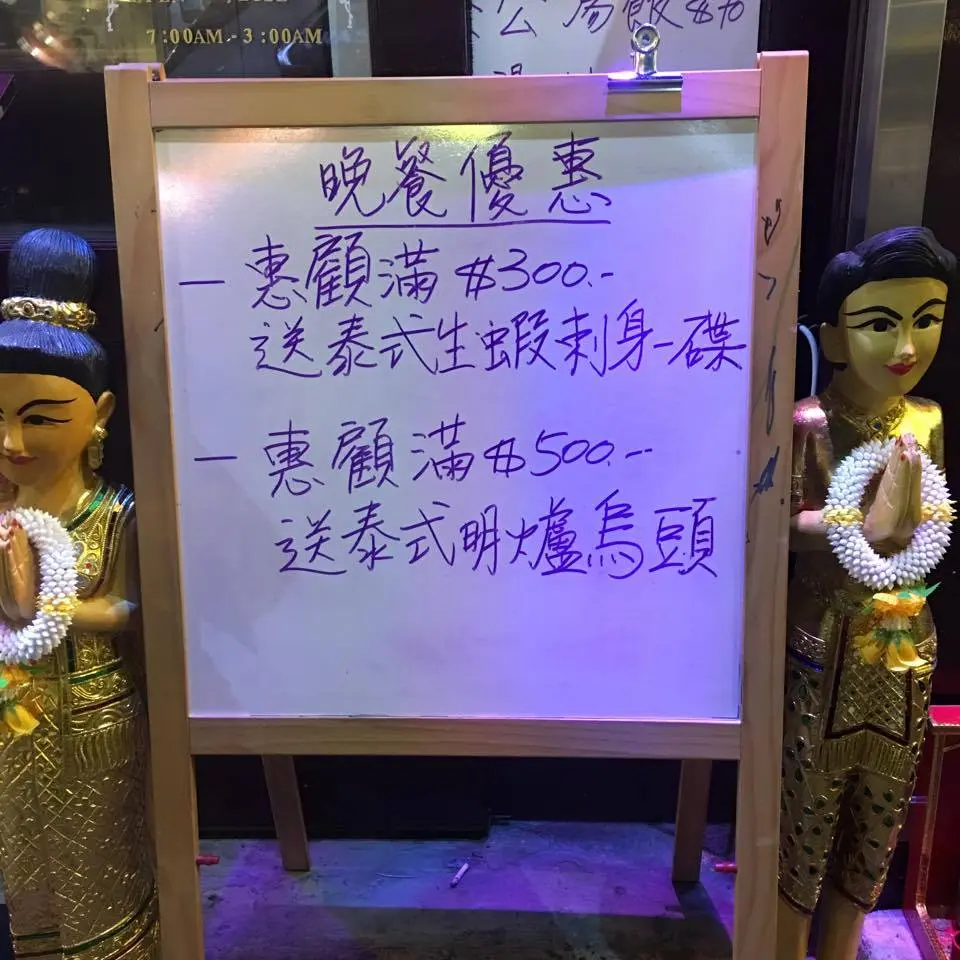 7:00AM.-3:00AM
公 湯飯 $70
晚餐優惠
— 惠顧滿 $300.-
送泰式生蝦刺身一碟
— 惠顧滿 $500.--
送泰式明爐烏頭